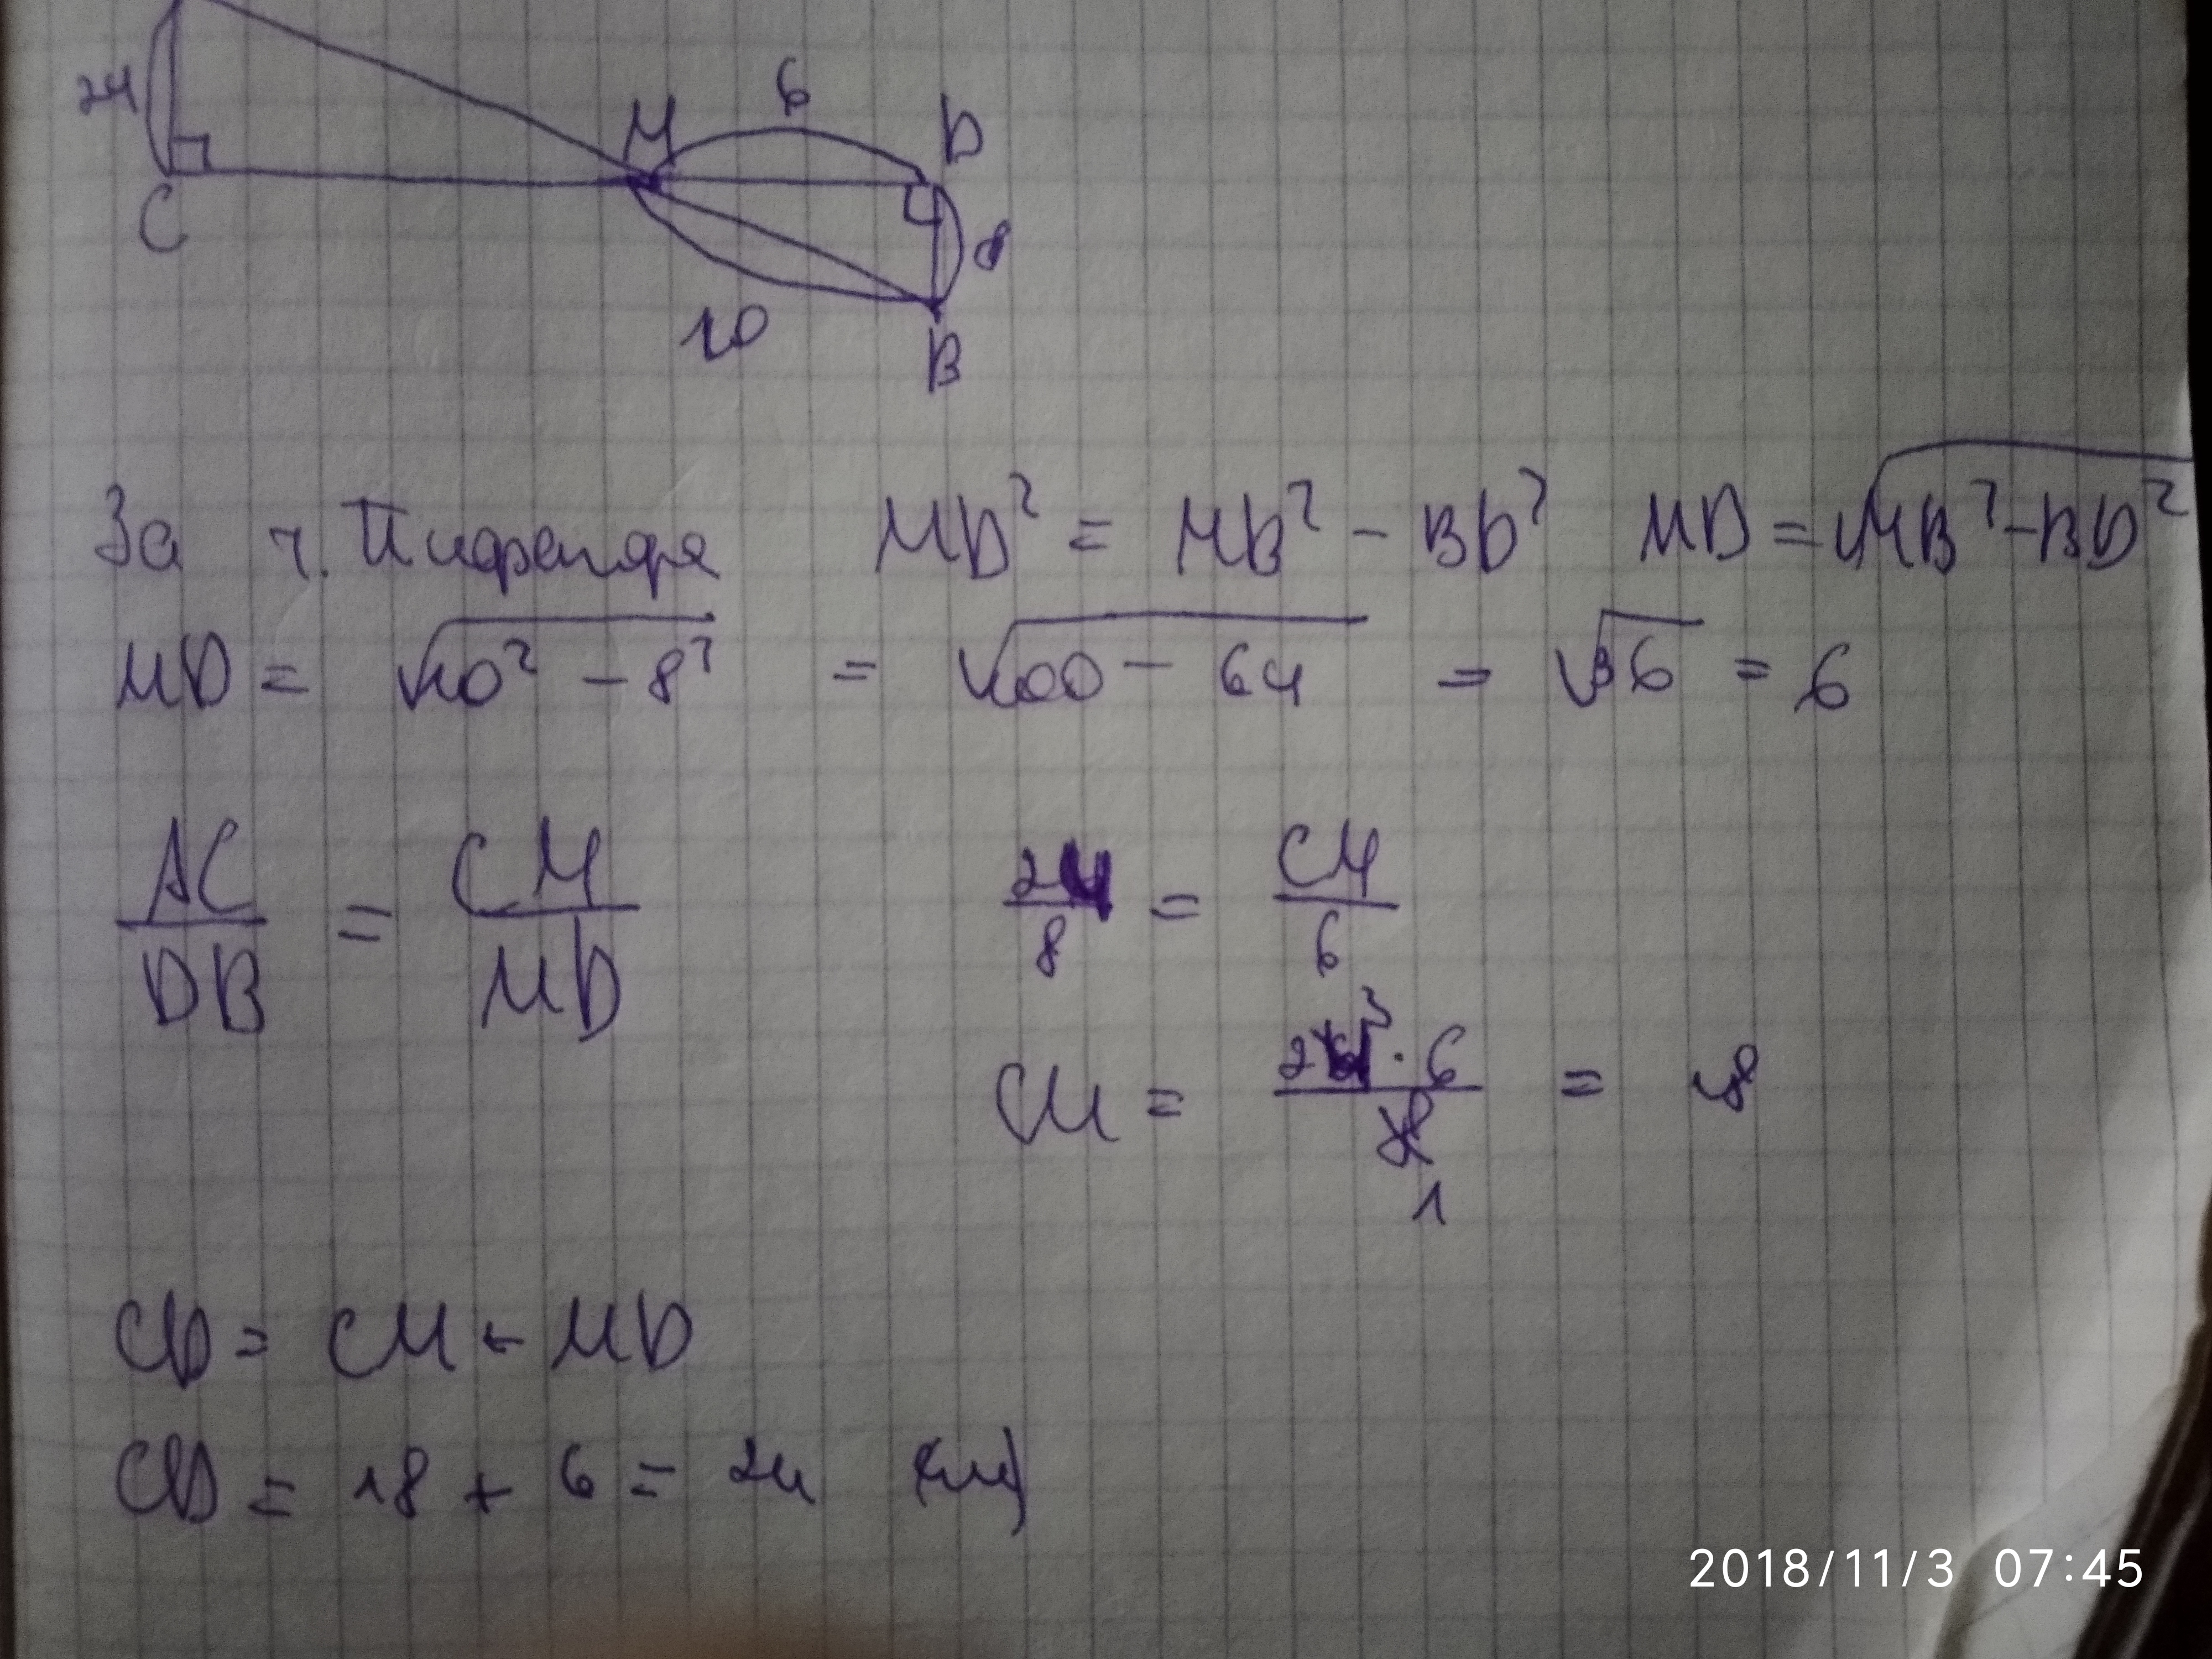 24
М 6 D
C
8
10
B
За т. Піфагора MD² = MB² - BD² MD = √MB² - BD²
MD = √10² - 8² = √100 - 64 = √36 = 6
AC/DB = CM/MD 24/8 = CM/6
CM = 24³ · 6 / 8 1 = 18
CD = CM + MD
CD = 18 + 6 = 24 (см)
2018/11/3 07:45